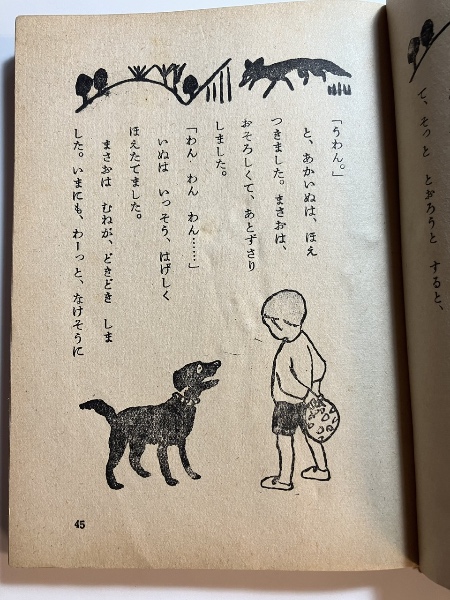 て、そっと とおろうと すると、
「うわん。」
と、あかいぬは、ほえ
つきました。まさおは、
おそろしくて、あとずさり
しました。
「わん わん わん……」
いぬは いっそう、はげしく
ほえたてました。
まさおは むねが、どきどき しま
した。いまにも、わーっと、なけそうに
45